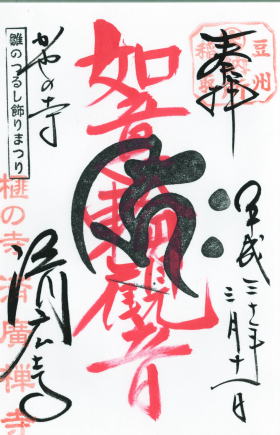 奉拝
豆州
稲取
平成三十年
三月十一日
如意輪觀音
雛のつるし飾りまつり
かやの寺
済広寺
榧の寺 済廣禅寺